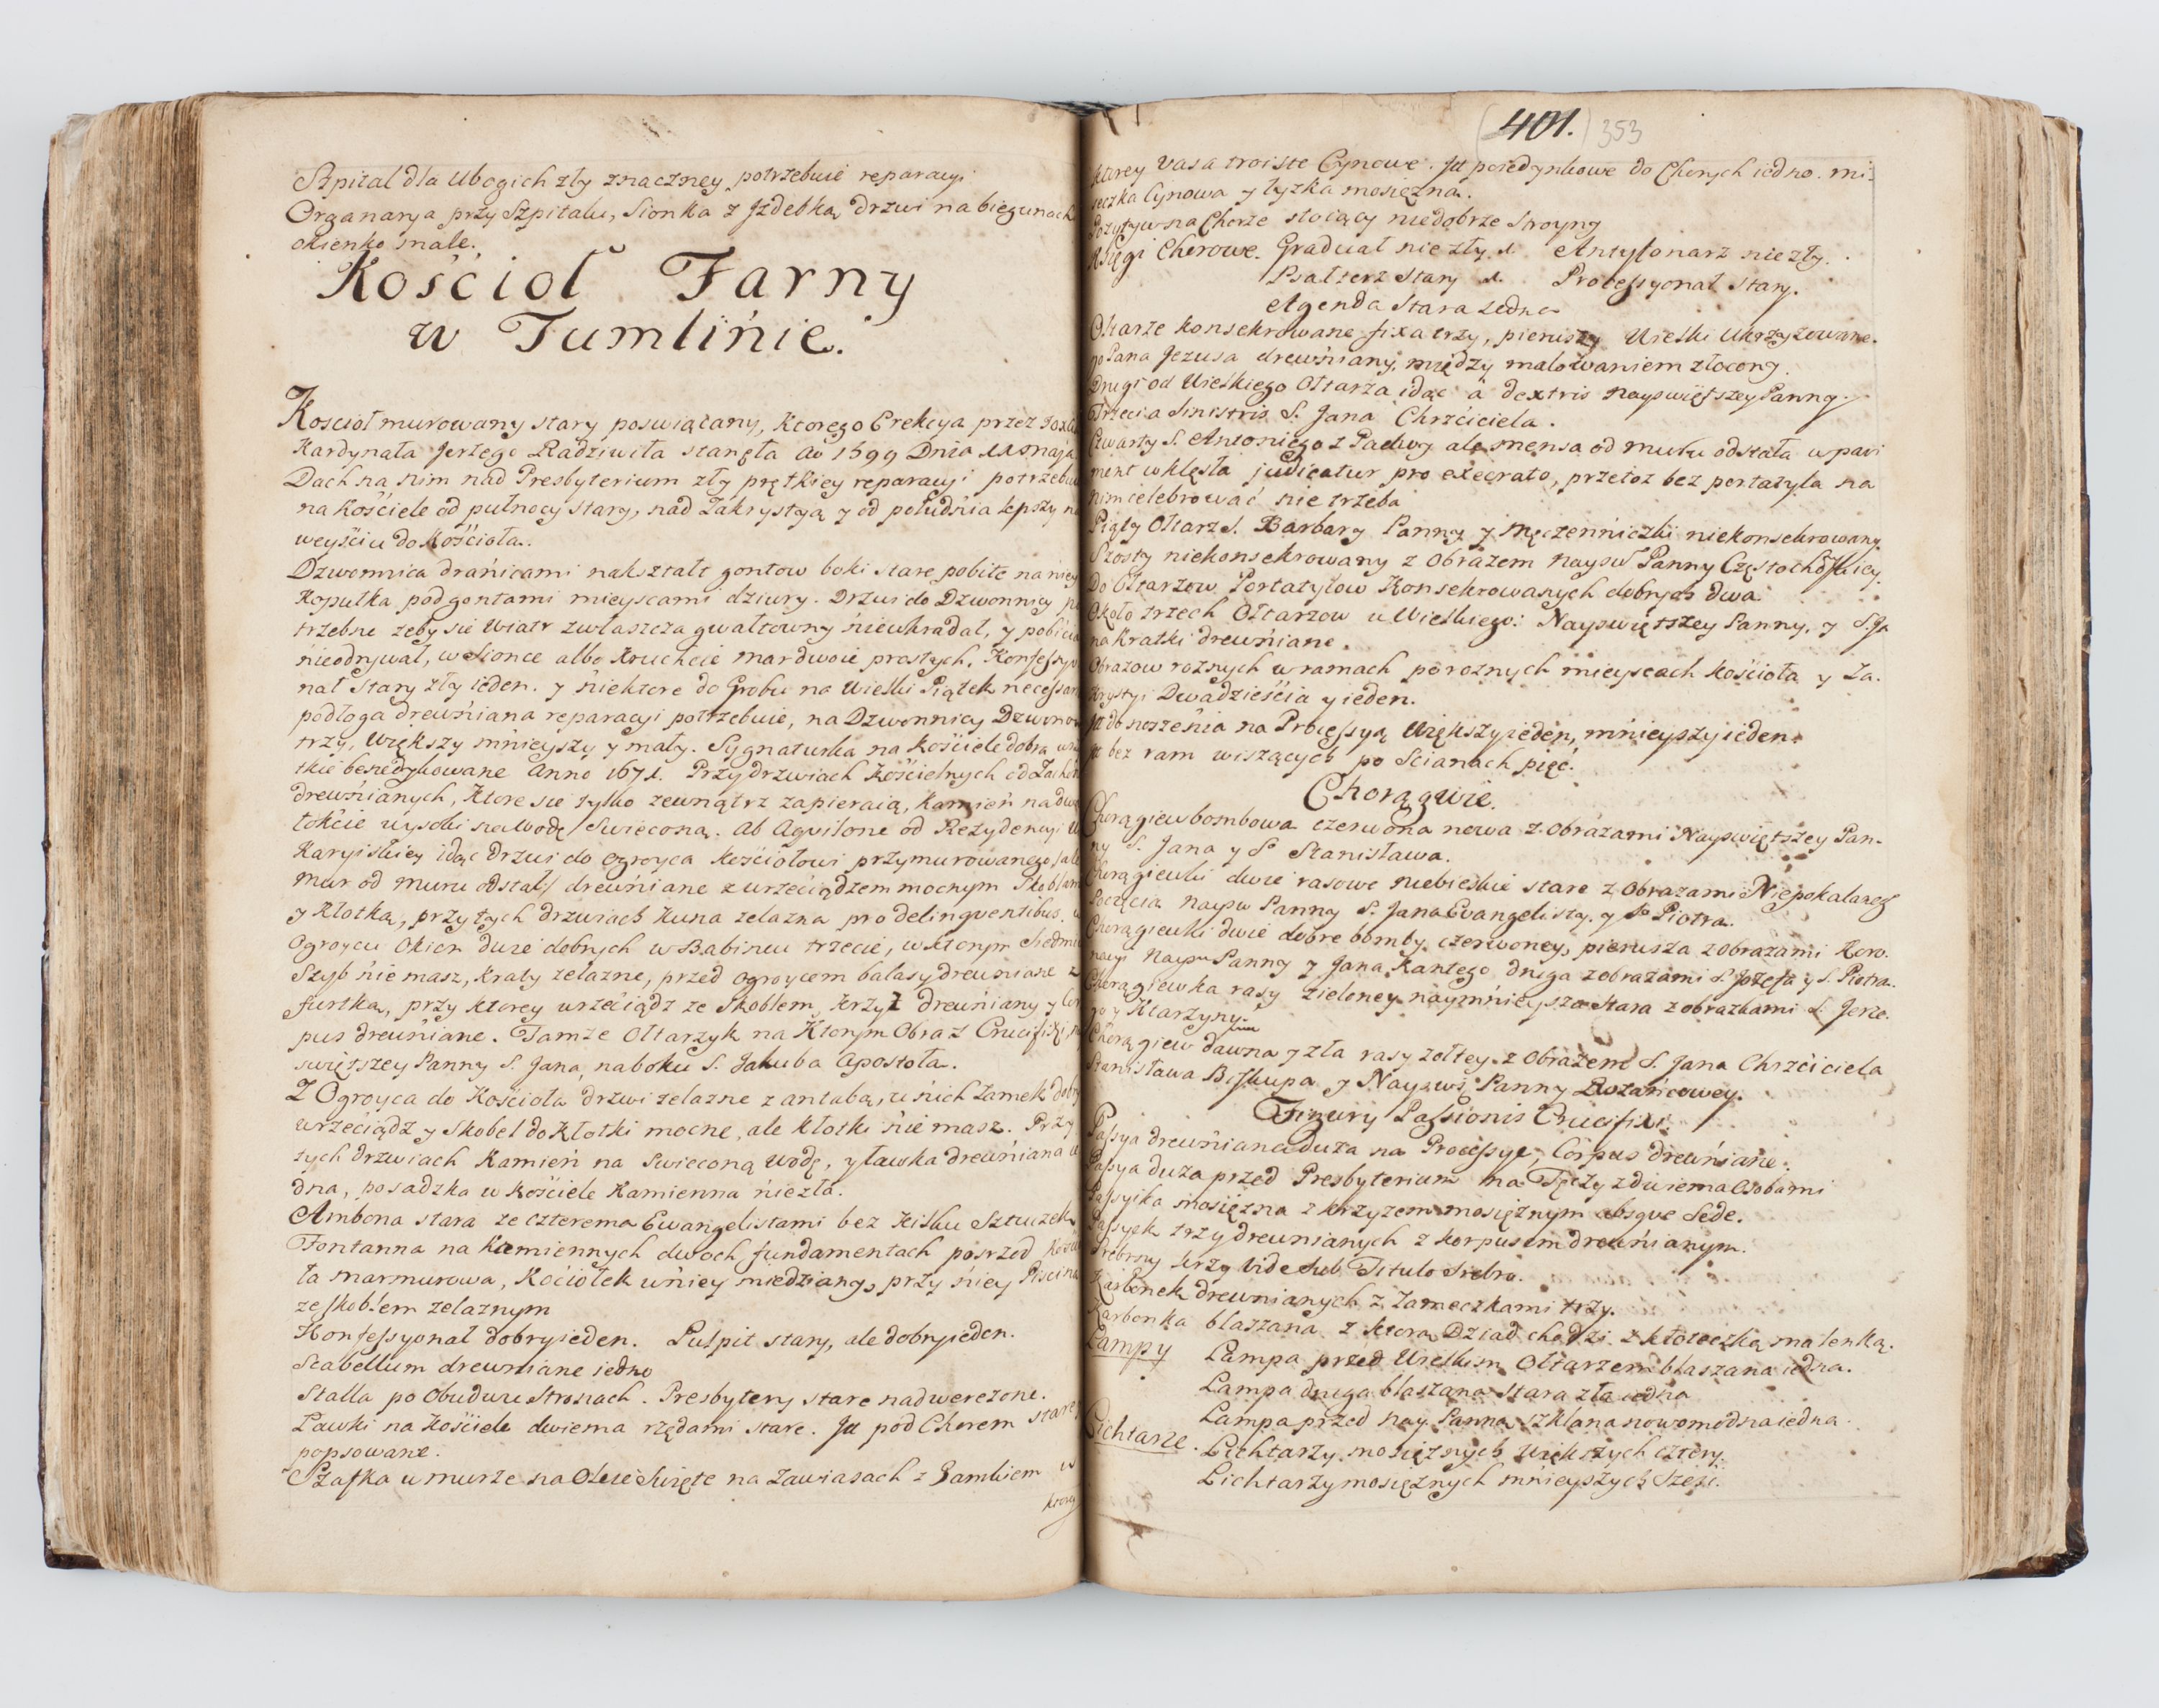 Szpital dla Ubogich zły znaczney potrzebuie reparacyi
Organarya przy Szpitalu, Sionka z Jzdebką drzwi na biegunach
okienko małe.
Kościoł Farny
w Tumlinie.
Kościoł murowany stary poswiącany, ktorego Erekcya przez
Kardynała Jerzego Radziwiła stanęła Ao 1599 Dnia Maja
Dach na nim nad Presbyterium zły prętkiey reparacyi potrzebuie
na Kościele od pułnocy stary, nad Zakrystyą y od południa lepszy
weyściu do Kościoła.
Dzwonnica dranicami nakształt gontow boki stare pobite na niey
Kopułka pod gontami mieyscami dziury. Drzwi do Dzwonnicy po
trzebne zeby sie wiatr zwłaszcza gwałtowny niewkradał, y pobicia
nieodrywał, w Sionce albo Kruchcie mar dwoie prostych, Konfessyo
nał stary zły ieden. y niektore do Grobu na Wielki Piątek necessaria
podłoga drewniana reparacyi potrzebuie, na Dzwonnicy Dzwonow
trzy, Większy mnieyszy y mały. Sygnaturka na Kościele dobra wszy
tkie benedykowane Anno 1671. Przy drzwiach Kościelnych od Zachodu
drewnianych, ktore sie tylko zewnątrz zapieraią, kamień na dwa
łokcie wysoki na Wodę Swięconą. Ab Aqvilone od Rezydencyi Wi
Karyiskiey idąc drzwi do Ogroyca Kościołowi przymurowanego /ale
mur od muru odstał/ drewniane z wrzeciądzem mocnym Skoblami
y Kłotką, przy tych drzwiach Kuna zelazna pro delinqventibus. w
Ogroycu Okien dwie dobrych w Babincu trzecie, w ktorym Siedmiu
Szyb nie masz, kraty zelazne, przed Ogroycem balasy drewniane z
furtką, przy ktorey wrzeciądz ze skoblem, krzyż drewniany y Cor
pus drewniane. Tamże Ołtarzyk na ktorym Obraz Crucifixi,
swiętszey Panny S. Jana, na boku S. Jakuba Apostoła.
Z Ogroyca do Kościoła drzwi zelazne z antabą, u nich Zamek dobry
wrzeciądz y Skobel do Kłotki mocne, ale kłotki nie masz. Przy
tych drzwiach Kamień na Swieconą Wodę, y ławka drewniana ie
dna, posadzka w Kościele Kamienna niezła.
Ambona stara ze czterema Ewangelistami bez kilku Sztuczek
Fontanna na Kamiennych dwoch fundamentach posrzod Kościo
ła marmurowa, Kociołek w niey miedziany, przy niey Piscina
ze skoblem zelaznym
Konfessyonał dobry ieden. Pulpit stary, ale dobry ieden.
Scabellum drewniane iedno
Stalla po Obudwu Stronach. Presbytery stare nadwerezone.
Ławki na Kościele dwiema rzędami stare. Jt pod Chorem stare
popsowane.
Szafka w murze na Oleie Swięte na Zawiasach z Zamkiem w
ktorey
401. 353
ktorey vasa troiste Cynowe. Jt poiedynkowe do Chorych iedno. mi-
seczka Cynowa y łyzka mosięzna.
Pozytyw na Chorze stoiący niedobrze Stroyny
Księgi Chorowe. Graduał niezły 1. Antyfonarz niezły.
Psałterz Stary 1. Processyonał stary.
Agenda Stara iedna
Ołtarze konsekrowane fixa trzy, pierwszy Wielki Ukrzyzowane-
go Pana Jezusa drewniany, między malowaniem złocony.
Drugi od Wielkiego Ołtarza idąc a dextris Nayswiętszey Panny.
Trzeci a Sinistris S. Jana Chrzciciela.
Czwarty S. Antoniego z Padwy ale mensa od muru odstała w pavi
ment wklęsła judicatur pro execrato, przetoz bez portatyla na
nim celebrować nie trzeba
Piąty Ołtarz S. Barbary Panny y Męczenniczki niekonsekrowany
Szosty niekonsekrowany z Obrazem Nayśw Panny Częstochowskiey.
Do Ołtarzow Portatylow Konsekrowanych dobrych dwa
Około trzech Ołtarzow u Wielkiego: Nayswiętszey Panny, y S. Ja
na kratki drewniane.
Obrazow roznych w ramach po roznych mieyscach Kościoła y Za-
krystyi Dwadzieścia y ieden.
Jt do noszenia na Processyą Większy ieden, mnieyszy ieden.
Jt bez ram wiszących po Scianach pięć.
Chorągwie.
Chorągiew bombowa czerwona nowa z Obrazami Nayswiętszey Pan-
ny S. Jana y So Stanisława.
Chorągiewki dwie rasowe niebieskie stare z Obrazami Niepokalanego
Poczęcia Naysw Panny S. Jana Evangelisty y So Piotra.
Chorągiewki dwie dobre bomby czerwoney, pierwsza z obrazami Koro-
nacyi Naysw Panny y Jana Kantego, druga z obrazami S. Jozefa y S. Piotra.
Chorągiewka rasy zieloney naymnieysza Stara z obrazkami S. Jerze-
go y Katarzyny.
Chorągiew dawna y zła rasy zołtey z Obrazem S. Jana Chrzciciela
Stanisława Biskupa y Naysw: Panny Rożańcowey.
Figury Passionis Crucifixi
Passya drewniana duża na Processye, Corpus drewniane.
Passya duza przed Presbyterium na Tęczy z dwiema Osobami
Passyika mosięzna z krzyzem mosięznym absqve Sede.
Passyek trzy drewnianych z korpusem drewnianym.
Srebrny krzyz vide sub Titulo Srebro.
Karbonek drewnianych z Zameczkami trzy.
Karbonka blaszana z ktorą Dziad chodzi z kłoteczką malenką.
Lampy Lampa przed Wielkim Ołtarzem blaszana iedna.
Lampa druga blaszana stara zła iedna
Lampa przed Nay. Panną szklana nowomodna iedna.
Lichtarze. Lichtarzy mosięznych większych cztery.
Lichtarzy mosięznych mnieyszych Sześć.